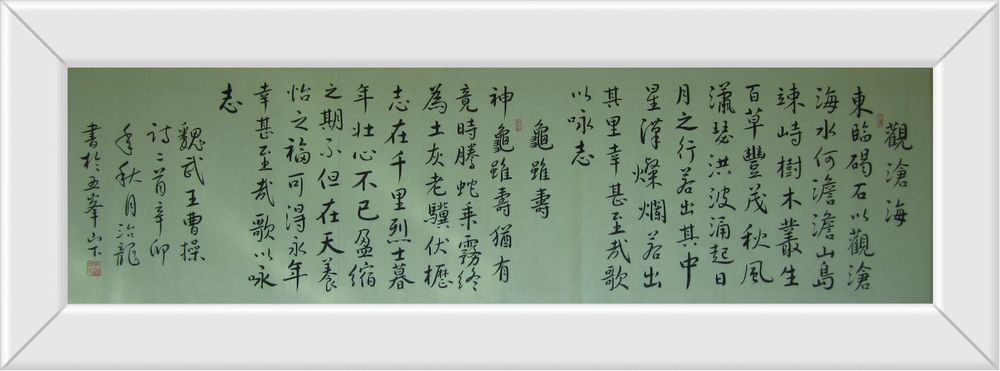 觀滄海
東臨碣石以觀滄
海水何澹澹山島
竦峙樹木叢生
百草豐茂秋風
瀟瑟洪波涌起日
月之行若出其中
星漢燦爛若出
其里幸甚至哉歌
以咏志
龜雖壽
神龜雖壽猶有
竟時騰蛇乘霧終
為土灰老驥伏櫪
志在千里烈士暮
年壯心不已盈縮
之期不但在天養
怡之福可得永年
幸甚至哉歌以咏
志
魏武王曹操
詩二首辛卯
年秋月治龍
書於五峯山下